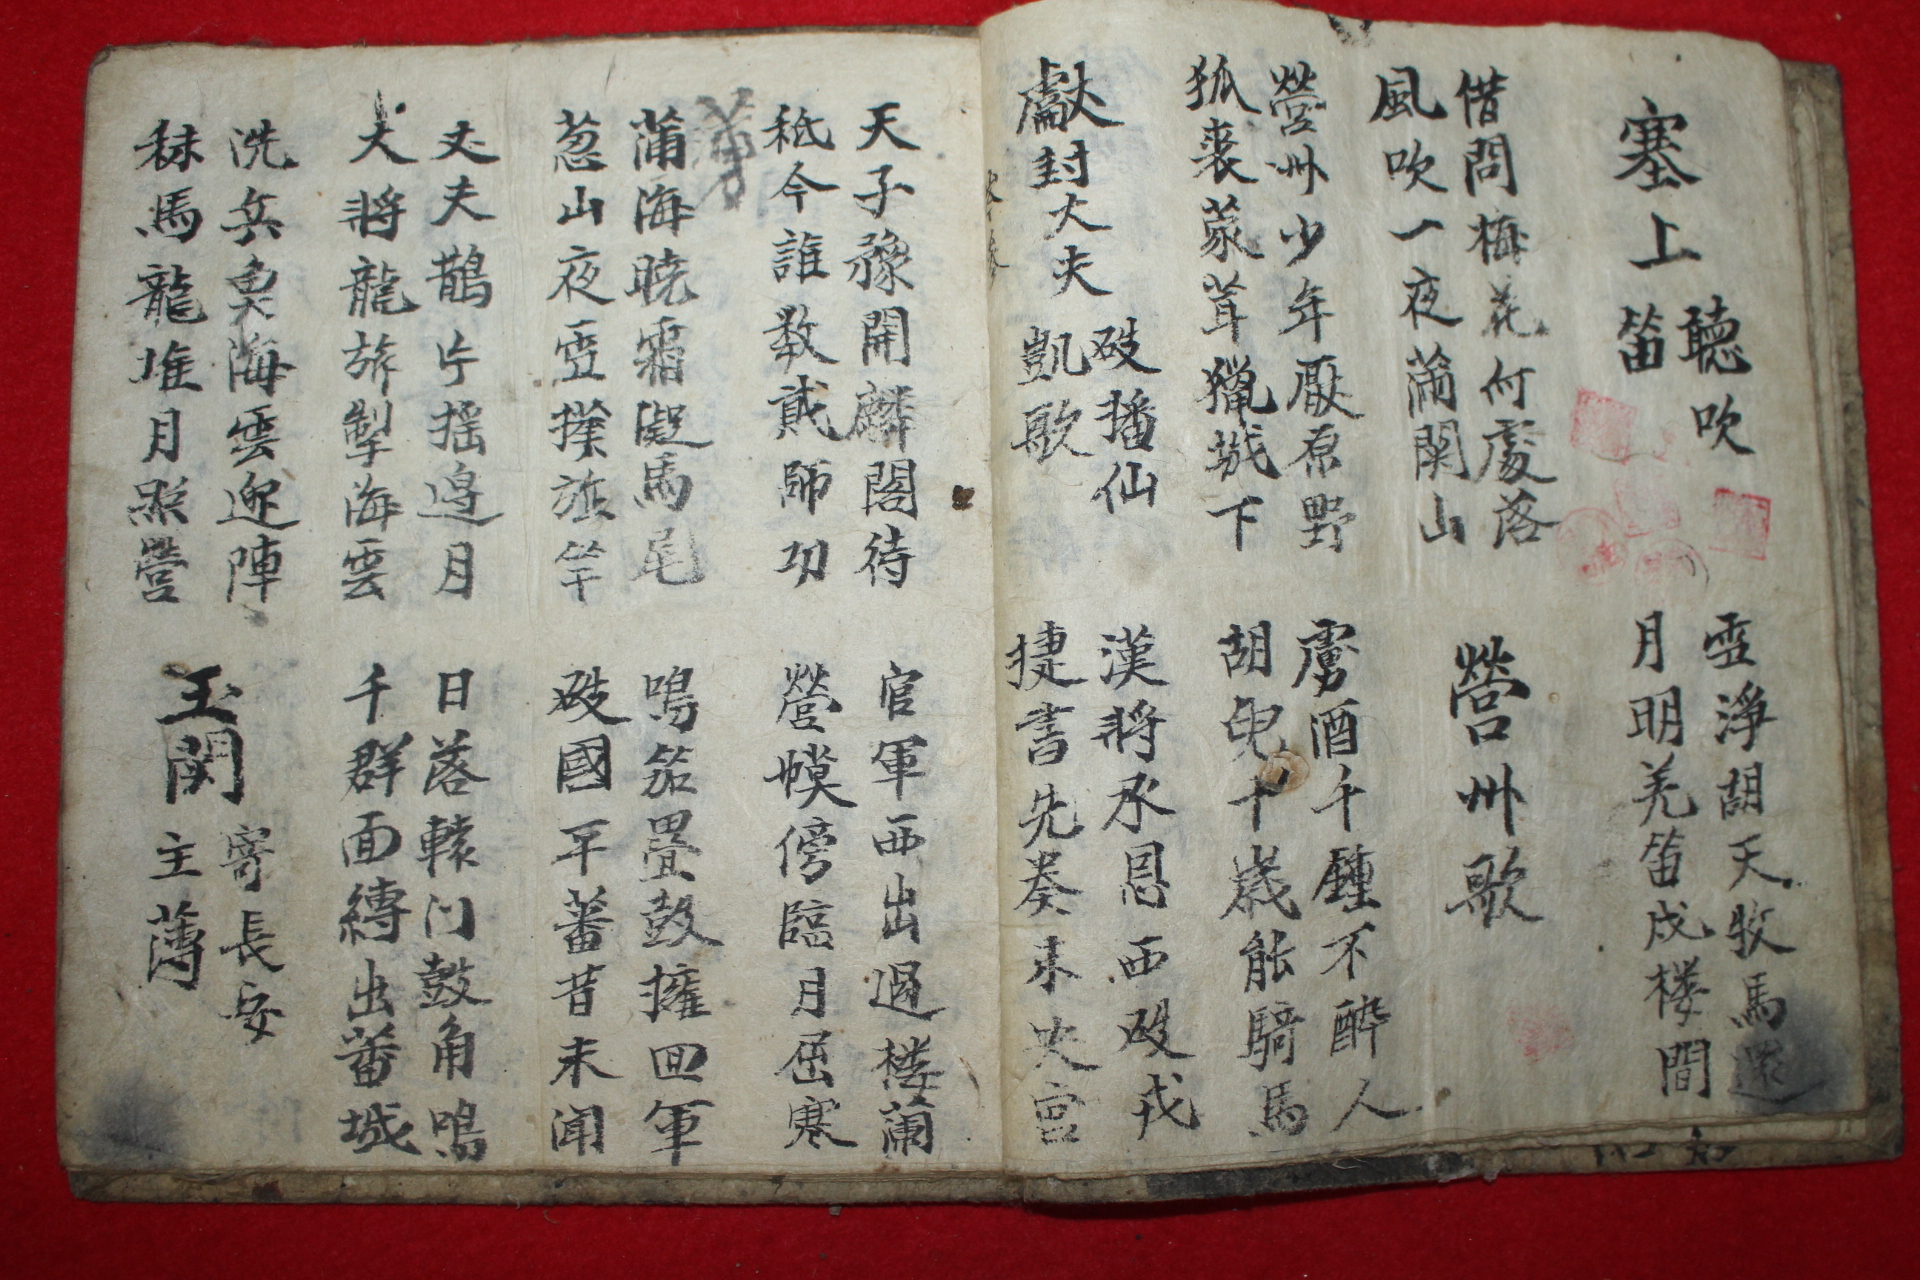 塞上 聽吹笛
雪淨胡天牧馬還
月明羌笛戍楼間
借問梅花何處落
風吹一夜滿関山
營州歌
營州少年厭原野
狐裘蒙茸獵城下
虜酒千鍾不醉人
胡兒十歲能騎馬
獻封大夫 破播仙凱歌
漢將承恩西破戎
捷書先奏未央宮
岑參
天子豫開麟閣待
秪今誰數貳師功
官軍西出過楼蘭
營幙傍臨月屈寒
蒲海曉霜凝馬尾
葱山夜雪撲旌竿
鳴笳疊鼓擁回軍
破國平蕃昔未聞
丈夫鵲片搖邊月
大將龍旂掣海雲
日落轅門鼓角鳴
千群面縛出蕃城
洗兵魚海雲迎陣
秣馬龍堆月照營
玉関 寄長安主薄